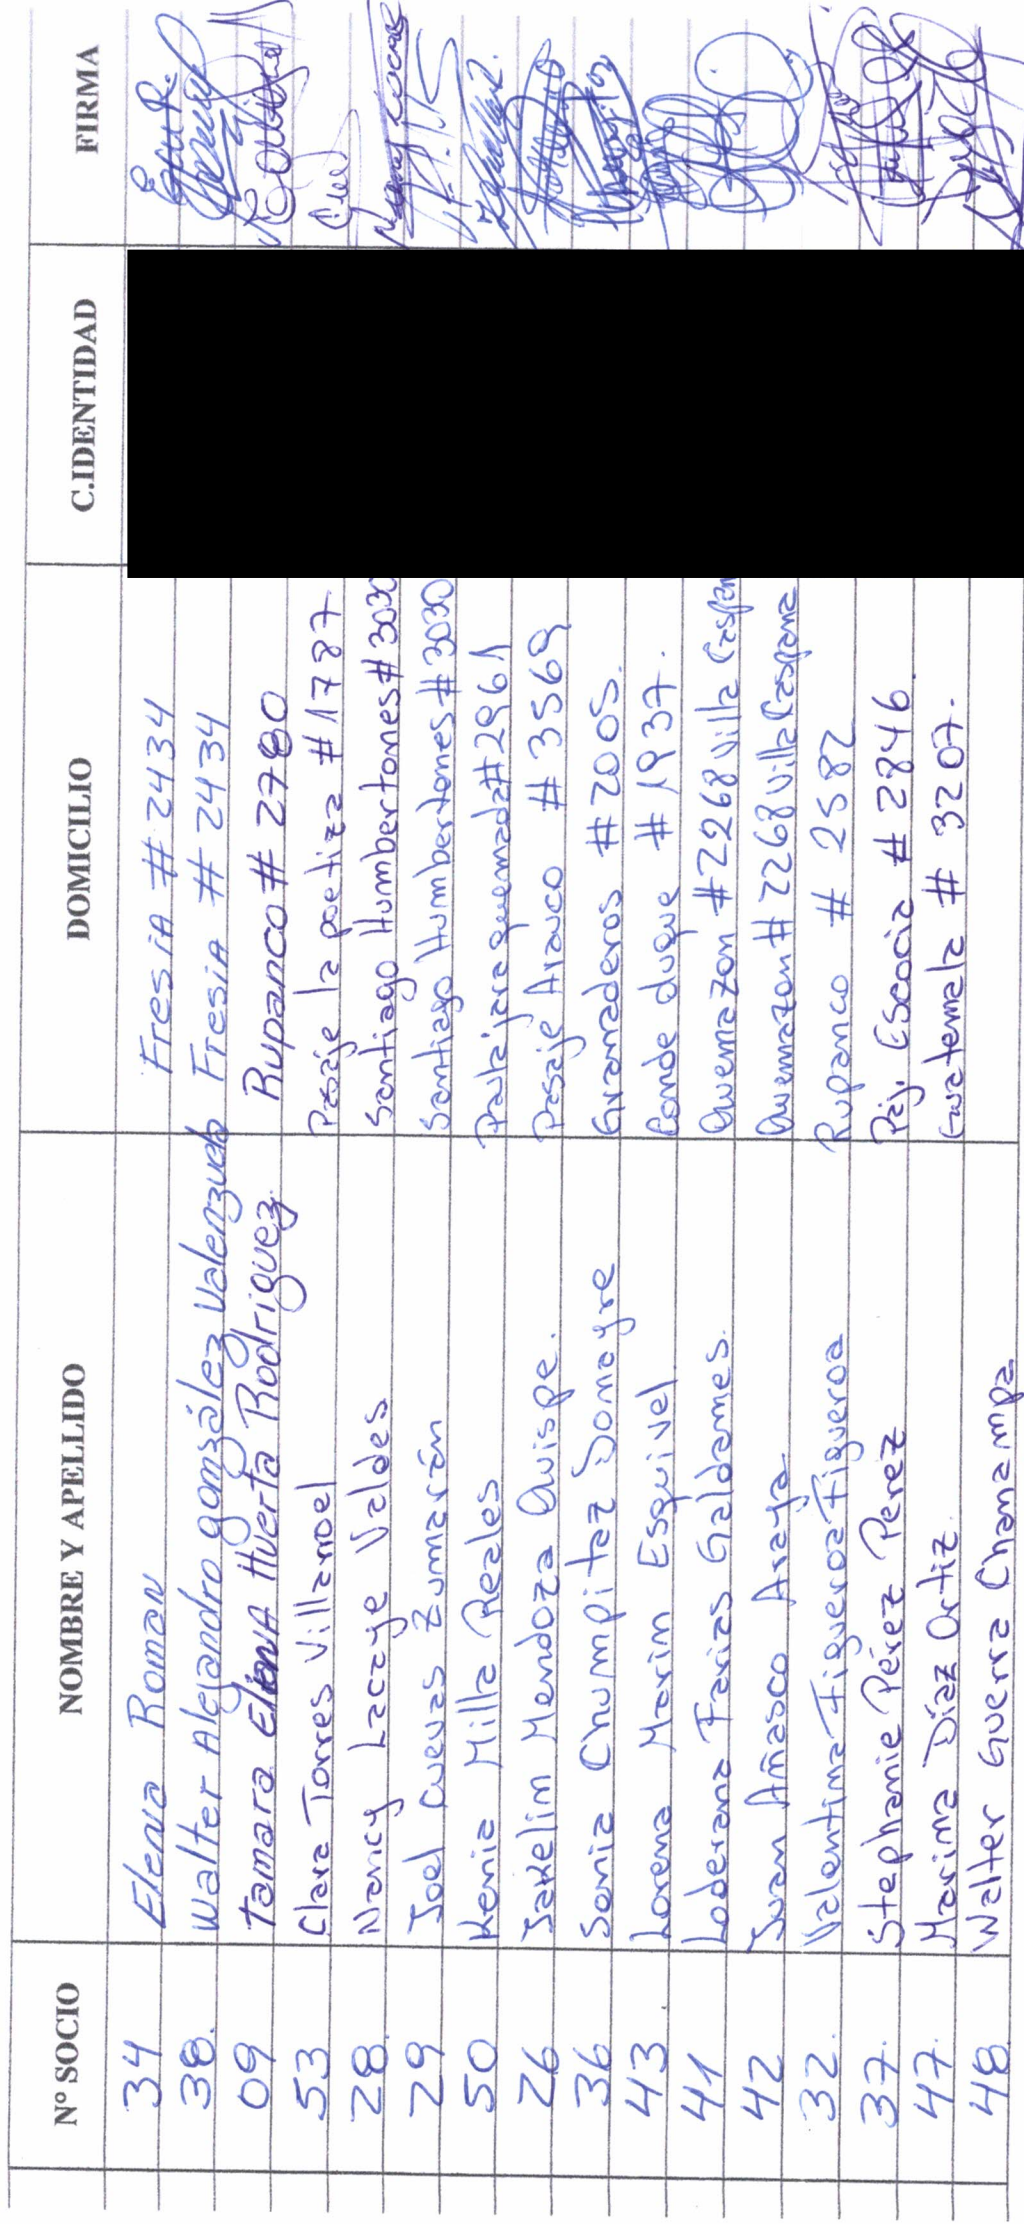 N° SOCIO NOMBRE Y APELLIDO DOMICILIO C.IDENTIDAD FIRMA
34 Elena Roman Fresia #2434
38. Walter Alejandro gonzález Valenzuela Fresia #2434
09 Tamara Elena Huerta Rodriguez. Rupanco #2780
53 Clara Torres Villarroel Pasaje la poetiza #1787
28. Nancy Lacaye Valdes Santiago Humbertones #3030
29 Joel Cuevas Zumarán Santiago Humbertones #3030
50 Kenia Milla Reales Paulajaraquemada #2961
26 Jakelin Mendoza Quispe. Pasaje Arauco #3569
36 Sonia Chumpitaz Somayre Granaderos #2005.
43 Lorena Marin Esquivel Conde duque #1937.
41 Loderana Farias Galdames. Quemazon #2268 Villa Caspan
42 Juan Añasco Araya Quemazon #2268 Villa Caspana
32. Valentina Figueroa Figueroa Rupanco #2582
37. Stephanie Pérez Perez Psj. Escocia #2846
47. Marina Díaz Ortiz. Guatemala #3207.
48 Walter Guerra Chanampa